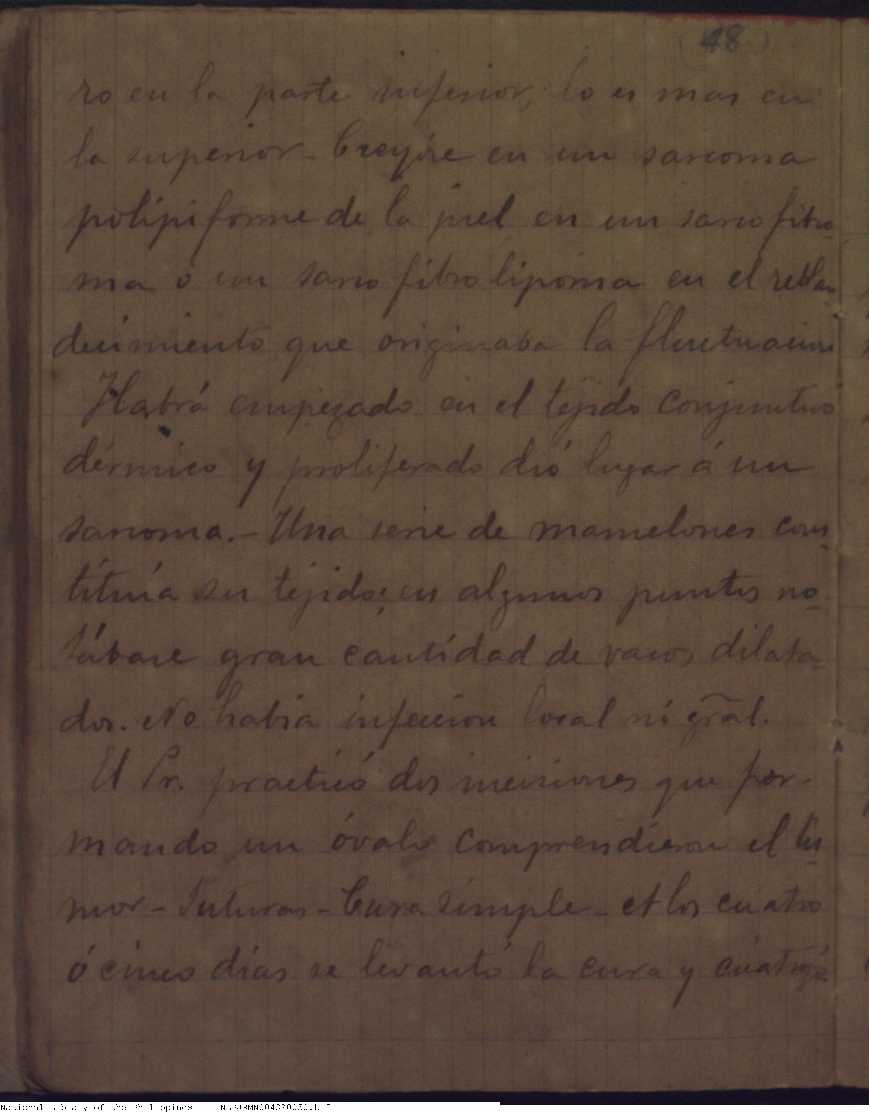 (48)
ro en la parte inferior, lo es mas en
la superior. Creyóse en un sarcoma
polipiforme de la piel en un sarco fibro-
ma ó un sarco fibro lipoma en el reblan
decimiento que originaba la fluctuacion
Habrá empezado en el tejido conjuntivo
dérmico y proliferado dió lugar á un
sarcoma.- Una serie de mamelones cons-
tituía su tejido; en algunos puntos no-
tábase gran cántidad de vasos dilata-
dos. No habia infeccion local ni gral.
El Pr. practicó dos incisiones que for-
mando un óvalo comprendieron el tu-
mor - Suturas - Cura simple - A los cuatro
ó cinco días se levantó la cura y
National Library of the Philippines